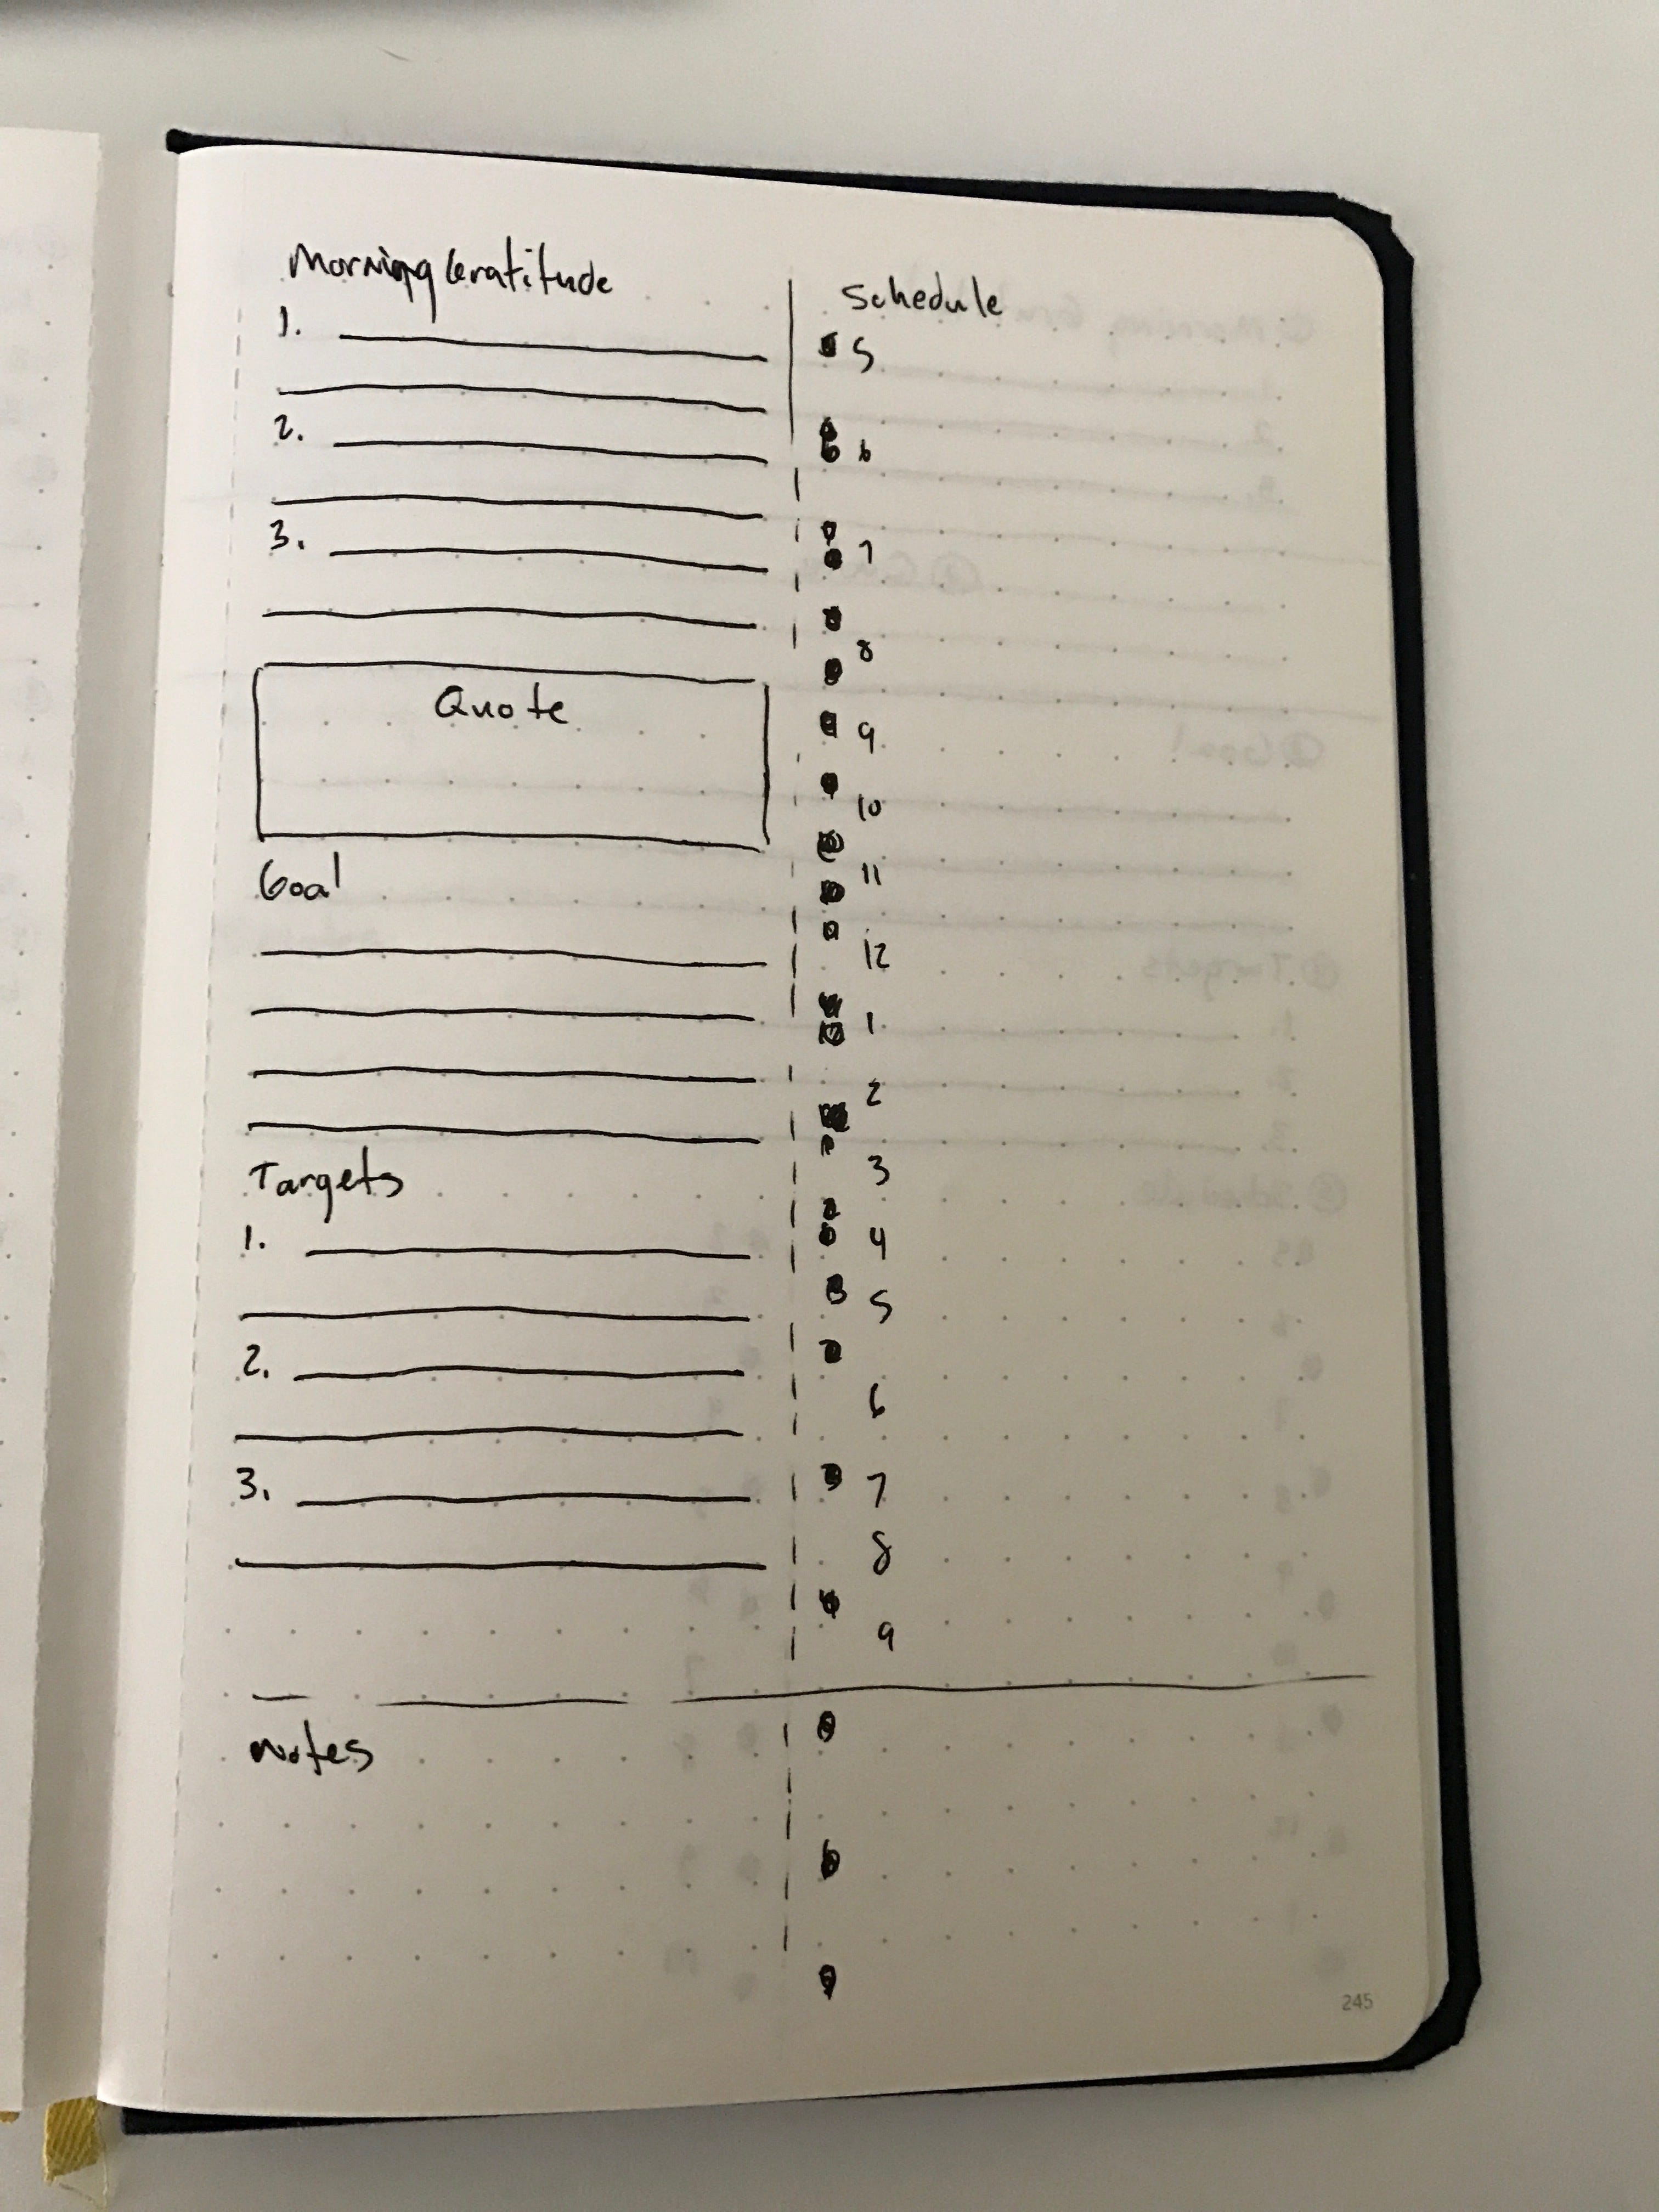 Morning Gratitude
1.
2.
3.
Quote
Goal
Targets
1.
2.
3.
Notes
Schedule
5
6
7
8
9
10
11
12
1
2
3
4
5
6
7
8
9
245